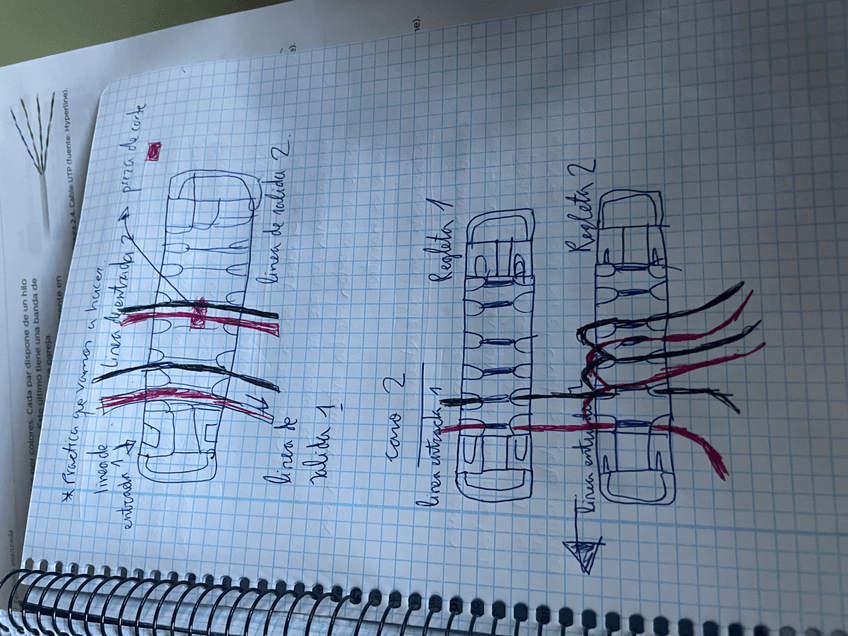 * Practica que vamos a hacer.
linea de entrada 1
linea de entrada 2
pieza de corte
linea de salida 1
linea de salida 2.
caso 2
linea entrada 1
Regleta 1
linea entrada
Regleta 2
2.4. Cable UTP (fuente: Hyperline).
colores. Cada par dispone de un hilo
último tiene una banda de
pareja
ente en